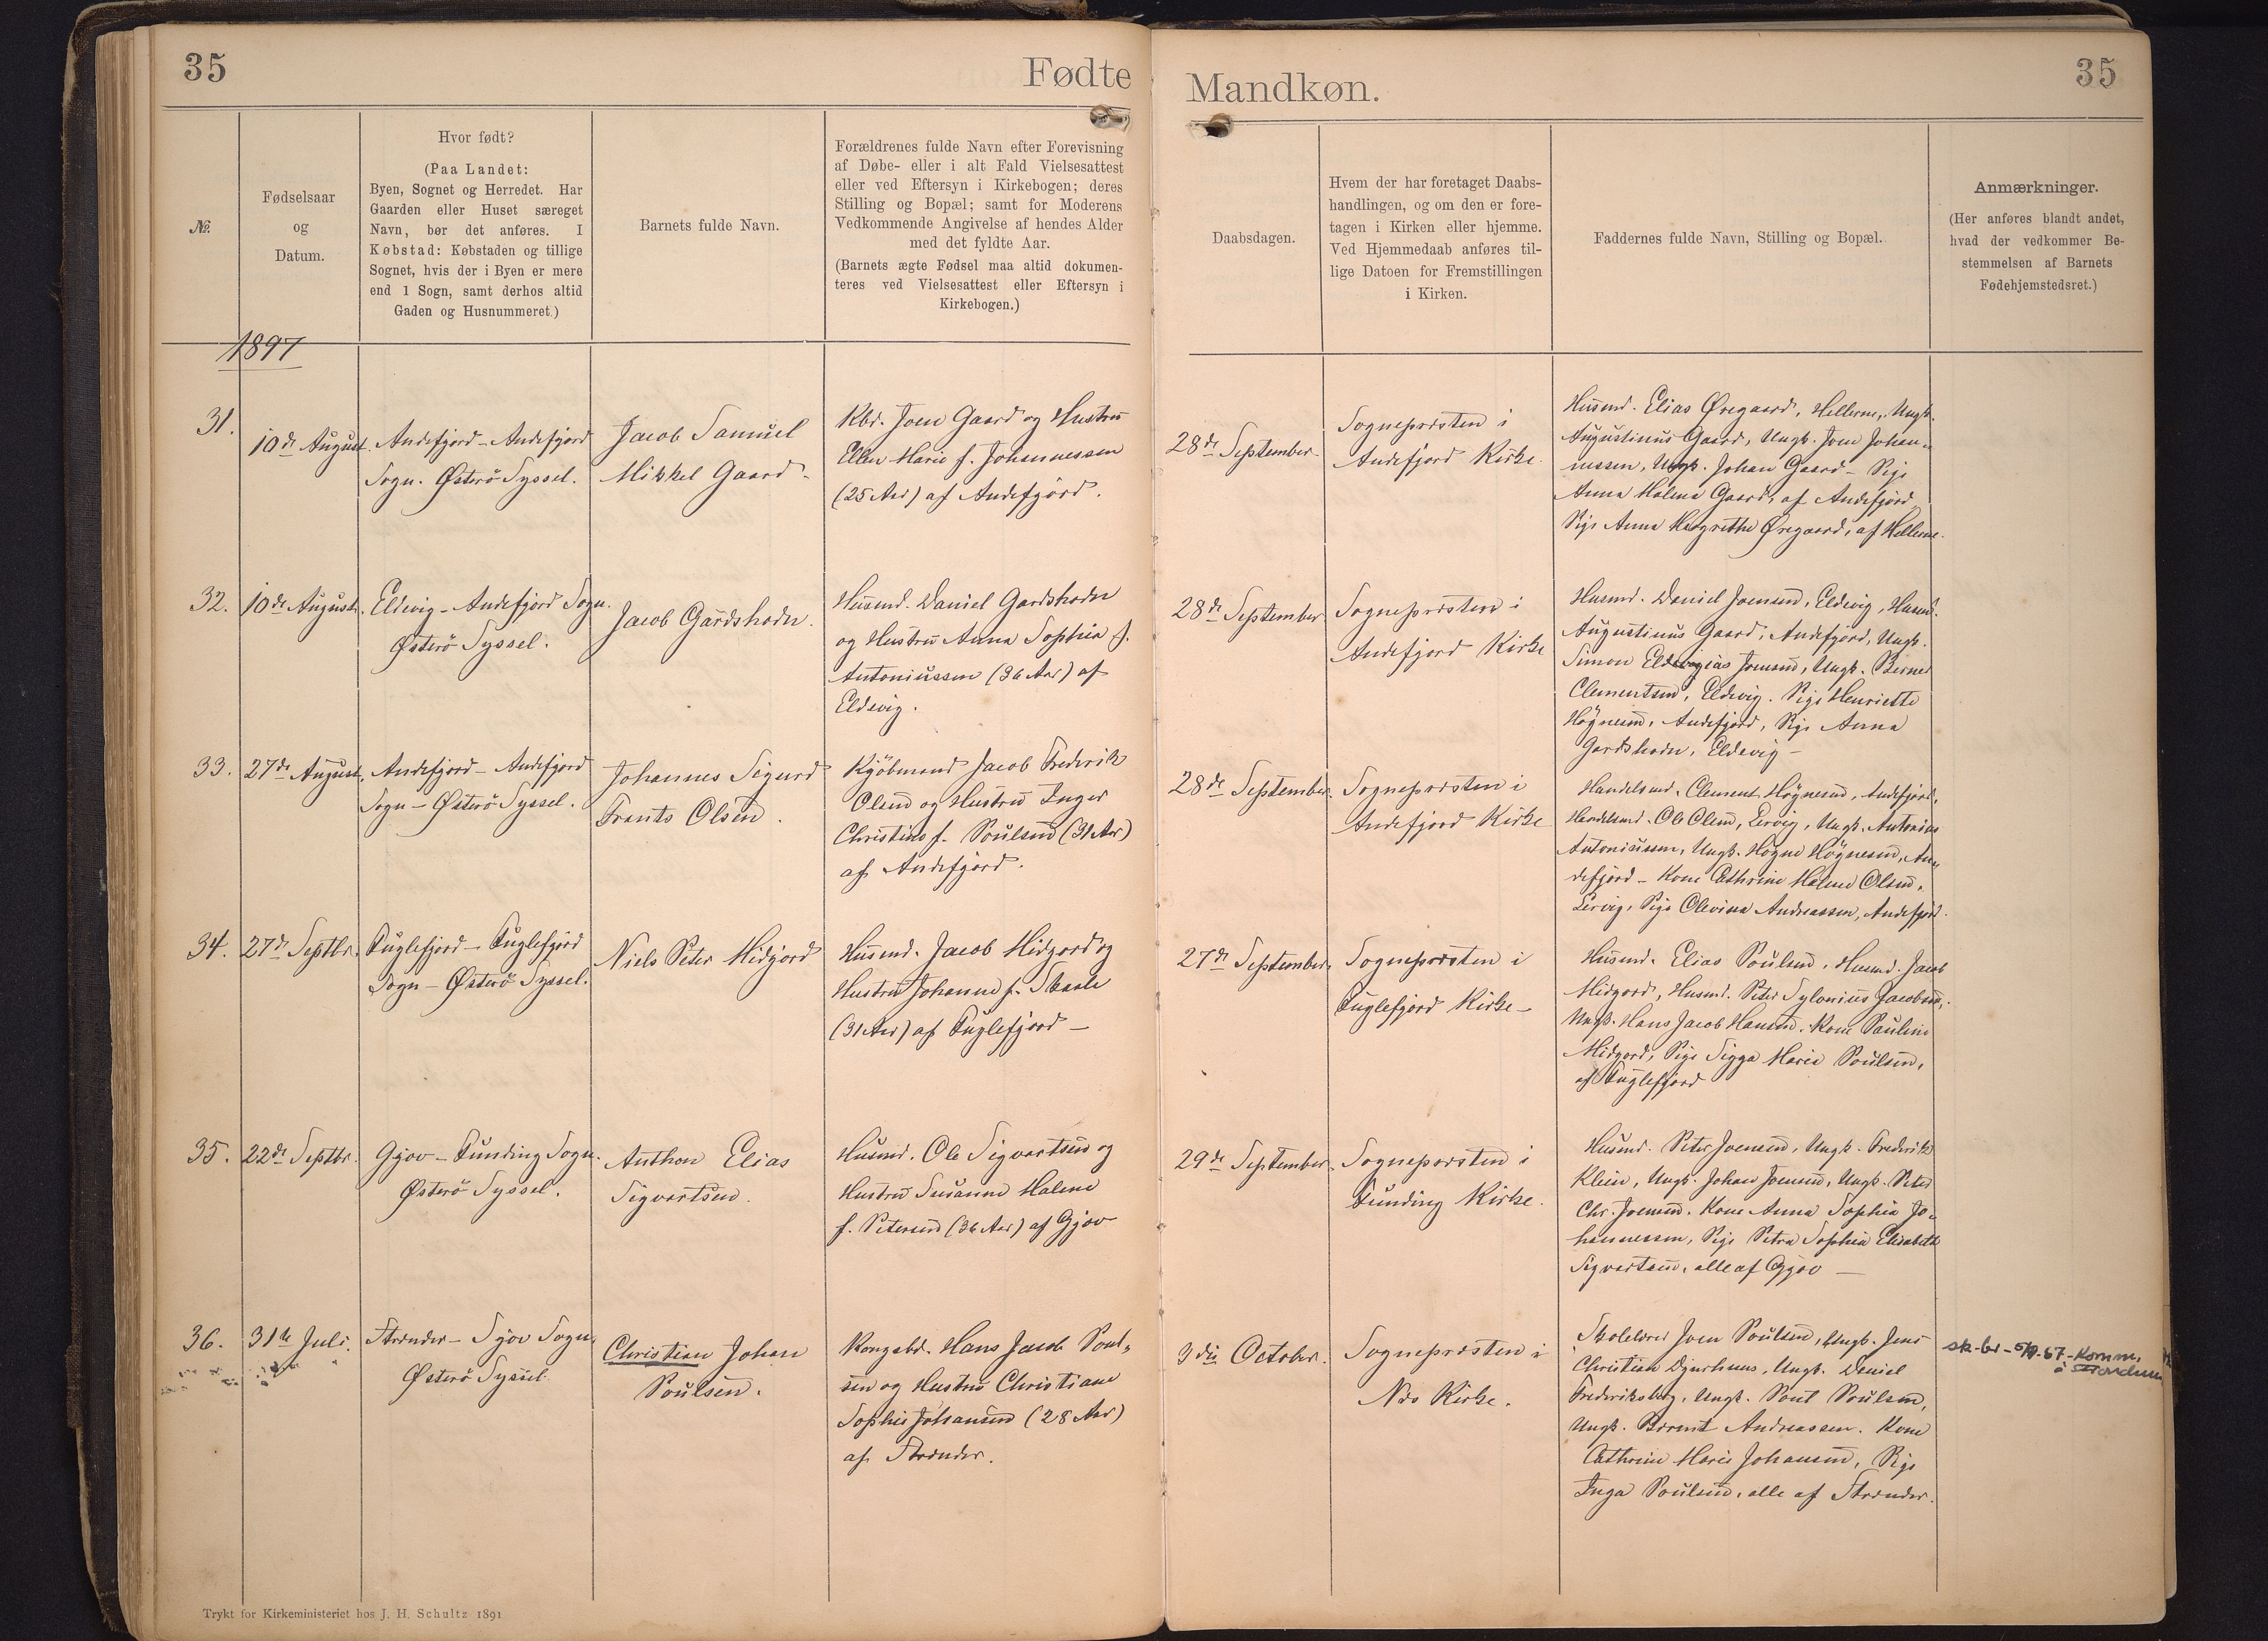 35
Fødte
Mandkøn.
35
№
Fødselsaar
og
Datum.
Hvor født?
(Paa Landet:
Byen, Sognet og Herredet. Har
Gaarden eller Huset særeget
Navn, bør det anføres. I
Købstad: Købstaden og tillige
Sognet, hvis der i Byen er mere
end 1 Sogn, samt derhos altid
Gaden og Husnummeret.)
Barnets fulde Navn.
Forældrenes fulde Navn efter Forevisning
af Døbe- eller i alt Fald Vielsesattest
eller ved Eftersyn i Kirkebogen; deres
Stilling og Bopæl; samt for Moderens
Vedkommende Angivelse af hendes Alder
med det fyldte Aar.
(Barnets ægte Fødsel maa altid dokumen-
teres ved Vielsesattest eller Eftersyn i
Kirkebogen.)
Daabsdagen.
Hvem der har foretaget Daabs-
handlingen, og om den er fore-
tagen i Kirken eller hjemme.
Ved Hjemmedaab anføres til-
lige Datoen for Fremstillingen
i Kirken.
Faddernes fulde Navn, Stilling og Bopæl.
Anmærkninger.
(Her anføres blandt andet,
hvad der vedkommer Be-
stemmelsen af Barnets
Fødehjemstedsret.)
1897
31.
10de August.
Andefjord - Andefjord
Sogn. Østerö Syssel.
Jacob Samuel
Mikkel Gaard.
Kbd. Joen Gaard og Hustru
Ellen Marie f. Johannessen
(25 Aar) af Andefjord.
28de September
Sognepræsten i
Andefjord Kirke.
Husmd. Elias Øregaard, Hellerne, Ungk.
Augustinus Gaard, Ungk. Joen Johan-
nessen, Ungk. Johan Gaard - Pige
Anna Malena Gaard, af Andefjord,
Pige Anna Margrethe Øregaard, af Hellerne.
32.
10de August.
Eldevig - Andefjord Sogn.
Østerö Syssel.
Jacob Gardshodn.
Husmd. Daniel Gardshodn
og Hustru Anna Sophia f.
Antoniussen (36 Aar) af
Eldevig.
28de September
Sognepræsten i
Andefjord Kirke
Husmd. Daniel Joensen, Eldevig, Husmd.
Augustinus Gaard, Andefjord, Ungk.
Simon Joensen, Ungk. Berner
Clementsen, Eldevig. Pige Henriette
Högnesen, Andefjord, Pige Anna
Gardshodn, Eldevig -
33.
27de August.
Andefjord - Andefjord
Sogn - Østerö Syssel.
Johannes Sigurd
Frants Olsen.
Kjöbmand Jacob Frederik
Olsen og Hustru Inger
Christine f. Poulsen (31 Aar)
af Andefjord.
28de September.
Sognepræsten i
Andefjord Kirke
Handelsmd. Clement Högnesen, Andefjord,
Handelsmd. Ole Olsen, Lervig, Ungk. Antonius
Antoniussen, Ungk. Högne Högnesen, An-
defjord - Kone Cathrine Malene Olsen,
Lervig, Pige Olevina Andreassen, Andefjord.
34.
27de Septbr.
Fuglefjord - Fuglefjord
Sogn - Østerö Syssel.
Niels Peter Midjord
Husmd. Jacob Midjord og
Hustru Johanne f. Skaale
(31 Aar) af Fuglefjord -
27de September.
Sognepræsten i
Fuglefjord Kirke -
Husmd. Elias Poulsen, Husmd. Jacob
Midjord, Husmd. Peter Sylonius Jacobsen,
Ungk. Hans Jacob Hansen. Kone Pauline
Midjord, Pige Sigga Marie Poulsen,
af Fuglefjord
35.
22de Septbr.
Gjov - Funding Sogn.
Østerö Syssel.
Anthon Elias
Sigvartsen.
Husmd. Ole Sigvartsen og
Hustru Susanne Malene
f. Petersen (36 Aar) af Gjov
29de September.
Sognepræsten i
Funding Kirke.
Husmd. Peter Joensen, Ungk. Frederik
Klein, Ungk. Johan Joensen, Ungk. Peter
Chr. Joensen. Kone Anna Sophia Jo-
hannessen, Pige Petra Sophia Elisabeth
Sigvartsen, alle af Gjov -
36.
31te Juli.
Strænder - Sjov Sogn,
Østerö Syssel.
Christian Johan
Poulsen.
Kongsbd. Hans Jacob Poul-
sen og Hustru Christiane
Sophie Johansen (28 Aar)
af Strænder.
3die October.
Sognepræsten i
Næs Kirke.
Skolelærer Joen Poulsen, Ungk. Jens
Christian Djurhuus, Ungk. Daniel
Frederiksberg, Ungk. Poul Poulsen,
Ungk. Berent Andreassen. Kone
Cathrine Marie Johansen, Pige
Inga Poulsen, alle af Strænder.
Komm.
Trykt for Kirkeministeriet hos J. H. Schultz 1891